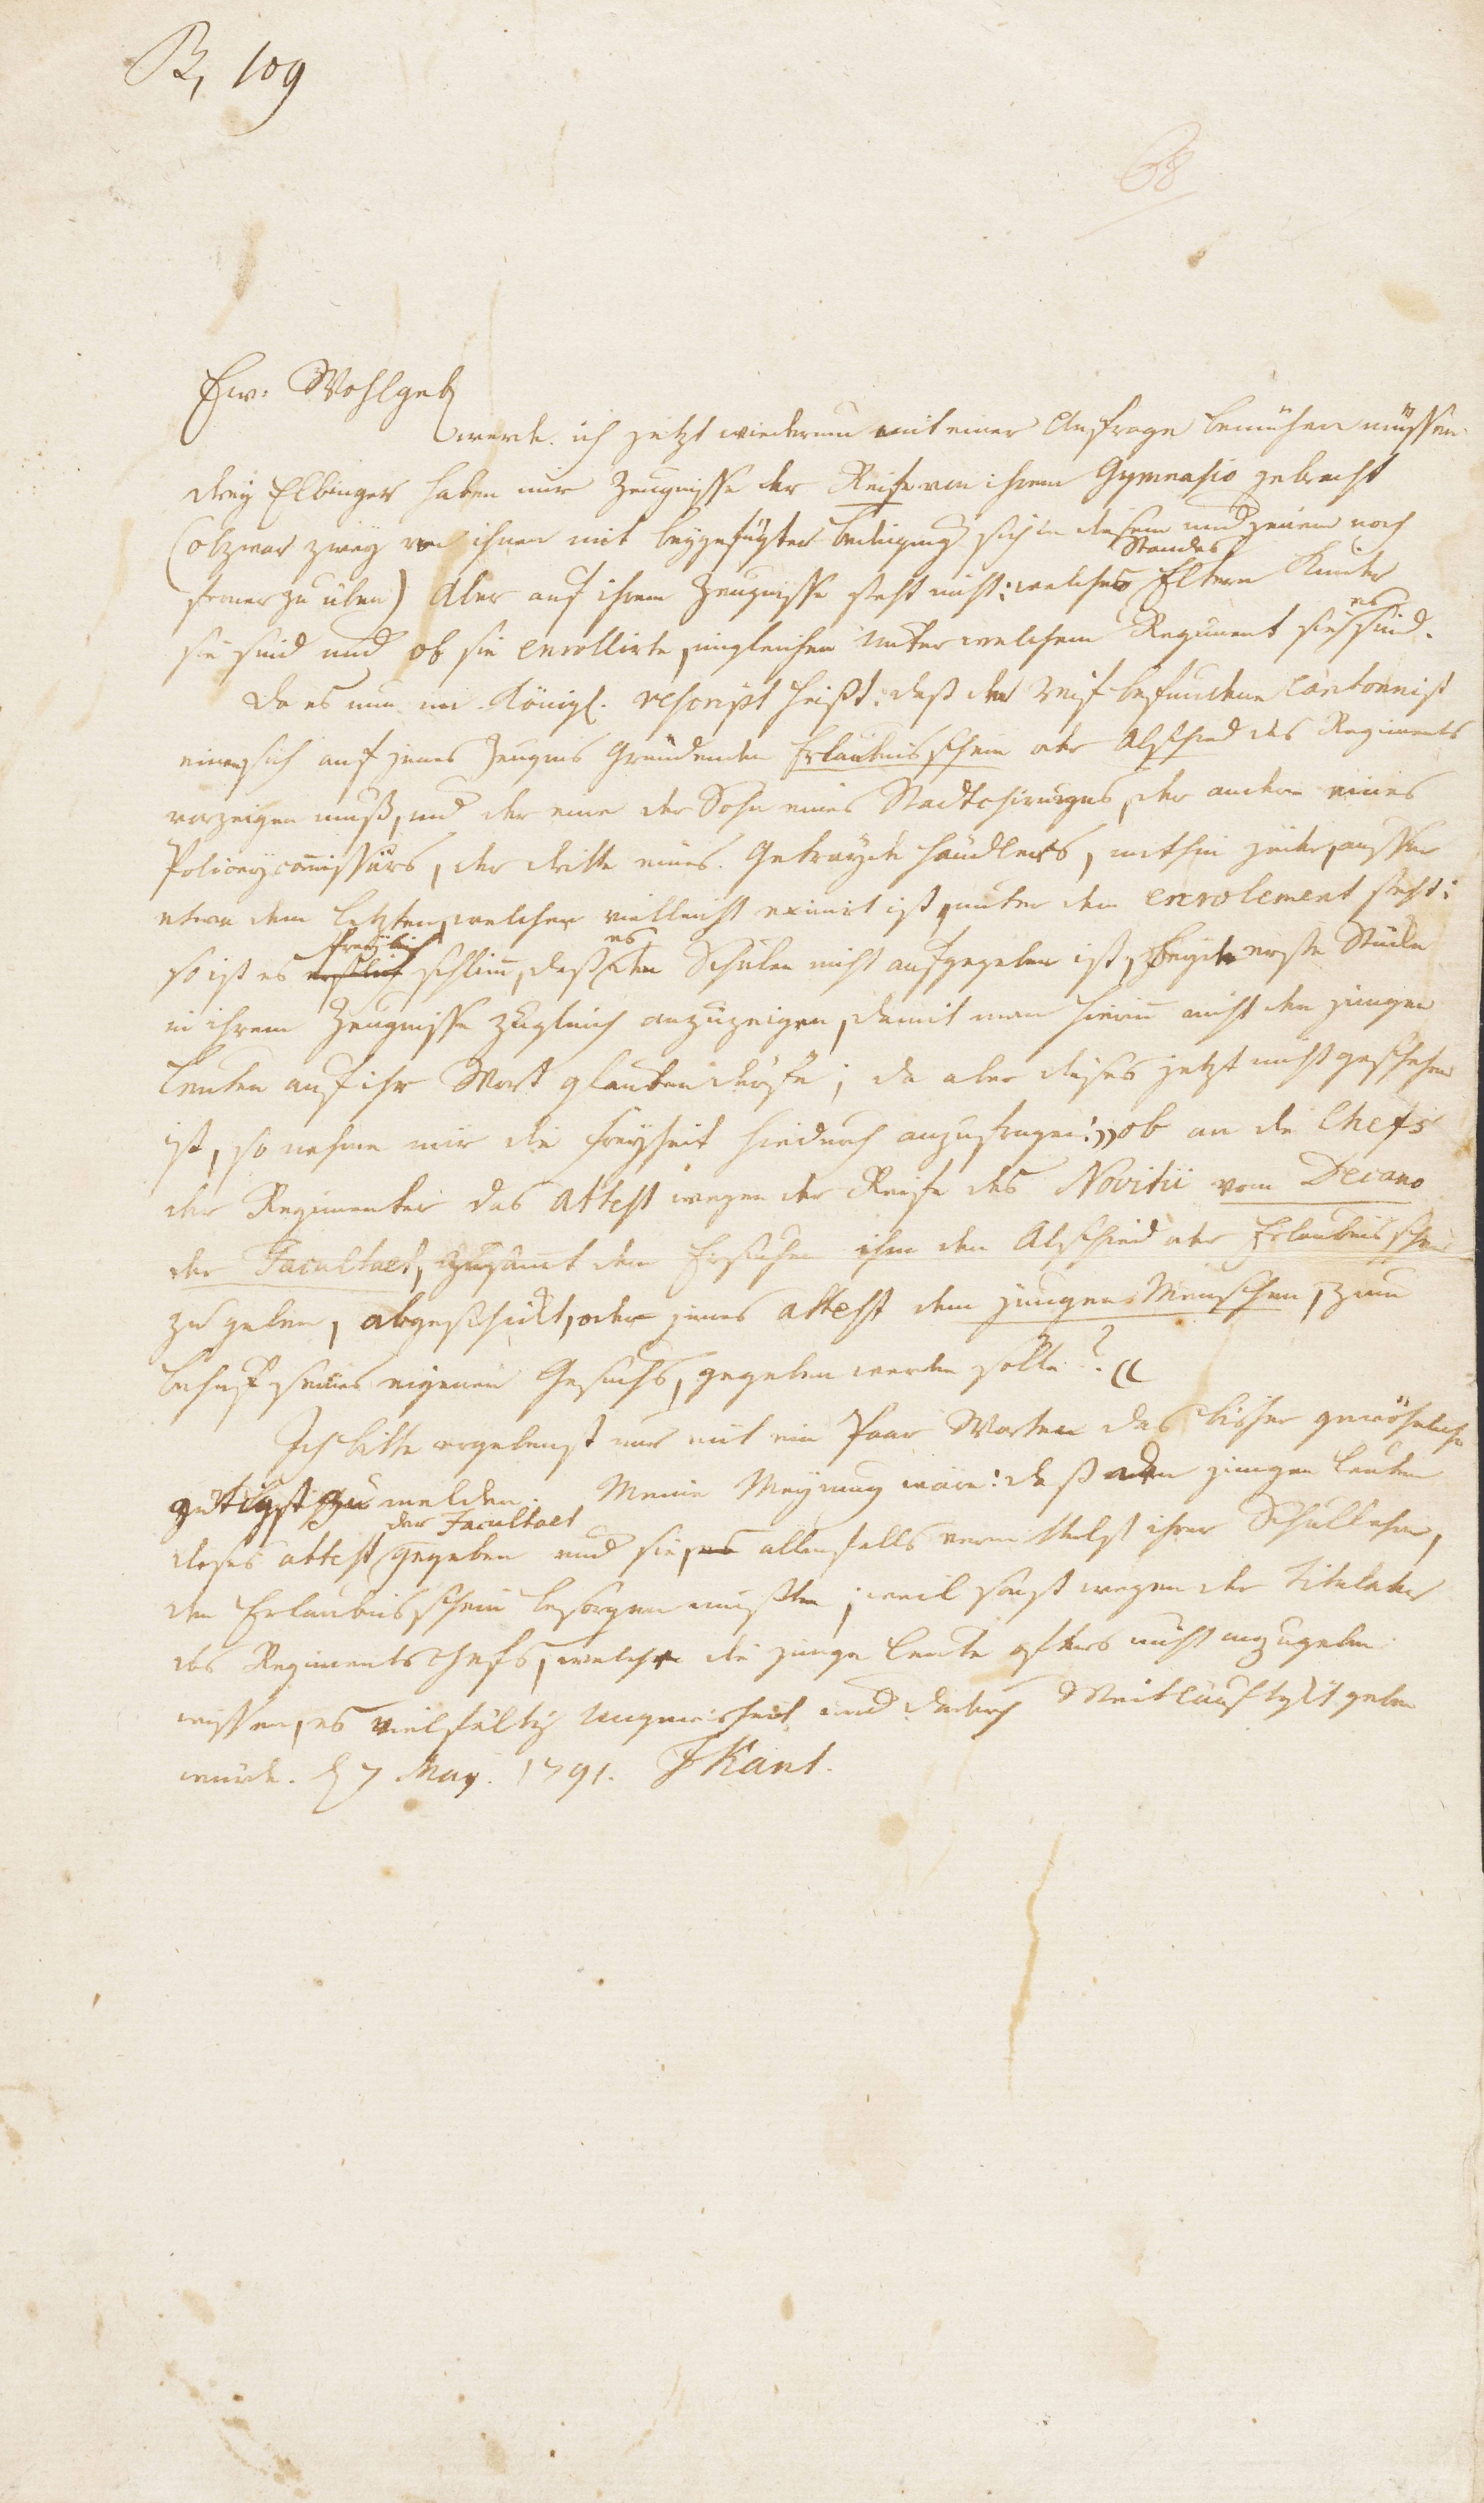 B, 109
68
Ew: Wohlgeb
werde ich jetzt wiederum mit einer Anfrage bemühen müssen.
drey Elbinger haben mir Zeugnisse der Reife von ihrem Gymnasio gebracht
(obzwar zwey von ihnen mit beygefügter Bedingung sich in diesem und jenem noch
ferner zu üben) Aber auf ihrem Zeugnisse steht nicht: welches Standes Eltern Kinder
sie sind und ob sie enrollirte, imgleichen unter welchem Regiment sie es sind.
Da es nun im Königl. rescript heißt: daß der reif befundene Cantonnist
einen sich auf jenes Zeugnis gründenden Erlaubnisschein oder Abschied des Regiments
vorzeigen muß, und der eine der Sohn eines Stadtchirurgus, der andere eines
Policeycomissärs, der dritte eines Getrayde händlers, mithin jeder, ausser
etwa dem letzten, welcher vielleicht eximirt ist, unter dem enrolement steht:
so ist es freylich schlimm, daß es den Schulen nicht aufgegeben ist, beyde erste Stücke
in ihrem Zeugnisse zugleich anzuzeigen, damit man hierin nicht den jungen
Leuten auf ihr Wort glauben dürfe; da aber dieses jetzt nicht geschehen
ist, so nehme mir die Freyheit hiedurch anzufragen: „ob an die Chefs
der Regimenter das Attest wegen der Reife des Novitii vom Decano
der Facultaet, zusamt dem Ersuchen ihm den Abschied oder Erlaubnisschein
zu geben, abgeschickt, oder jenes attest dem jungen Menschen, zum
behuf seines eigenen Gesuchs, gegeben werden solle?“
Ich bitte ergebenst mir mit ein Paar Worten das bisher gewöhnliche
gütigst zu melden. Meine Meynung wäre: daß den jungen Leuten
dieses attest der Facultaet gegeben und sie, es allenfalls vermittelst ihrer Schullehrer,
den Erlaubnisschein besorgen müßten; weil sonst wegen der Titulatur
des Regimentschefs, welche die junge Leute öfters nicht anzugeben
wissen, es vielfältig Ungewisheit und dadurch Weitläuftigkeit geben
würde. d 7 May. 1791. I Kant.